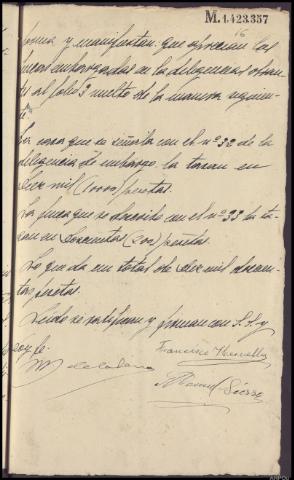 M.1.423.357
16
forma y manifiestan: que aprecian las
fincas embargadas en la diligencia obran-
te al folio 3 vuelto de la manera siguien-
te.
La casa que se señala con el nº 32 de la
diligencia de embargo la tasan en
diez mil (10000) pesetas.
La finca que se describe con el nº 33 la ta-
san en doscientas (200) pesetas.
Lo que da un total de diez mil doscien-
tas pesetas.
Leído se ratifican y firman con S.S. y
doy fe.
Francisco
Manuel